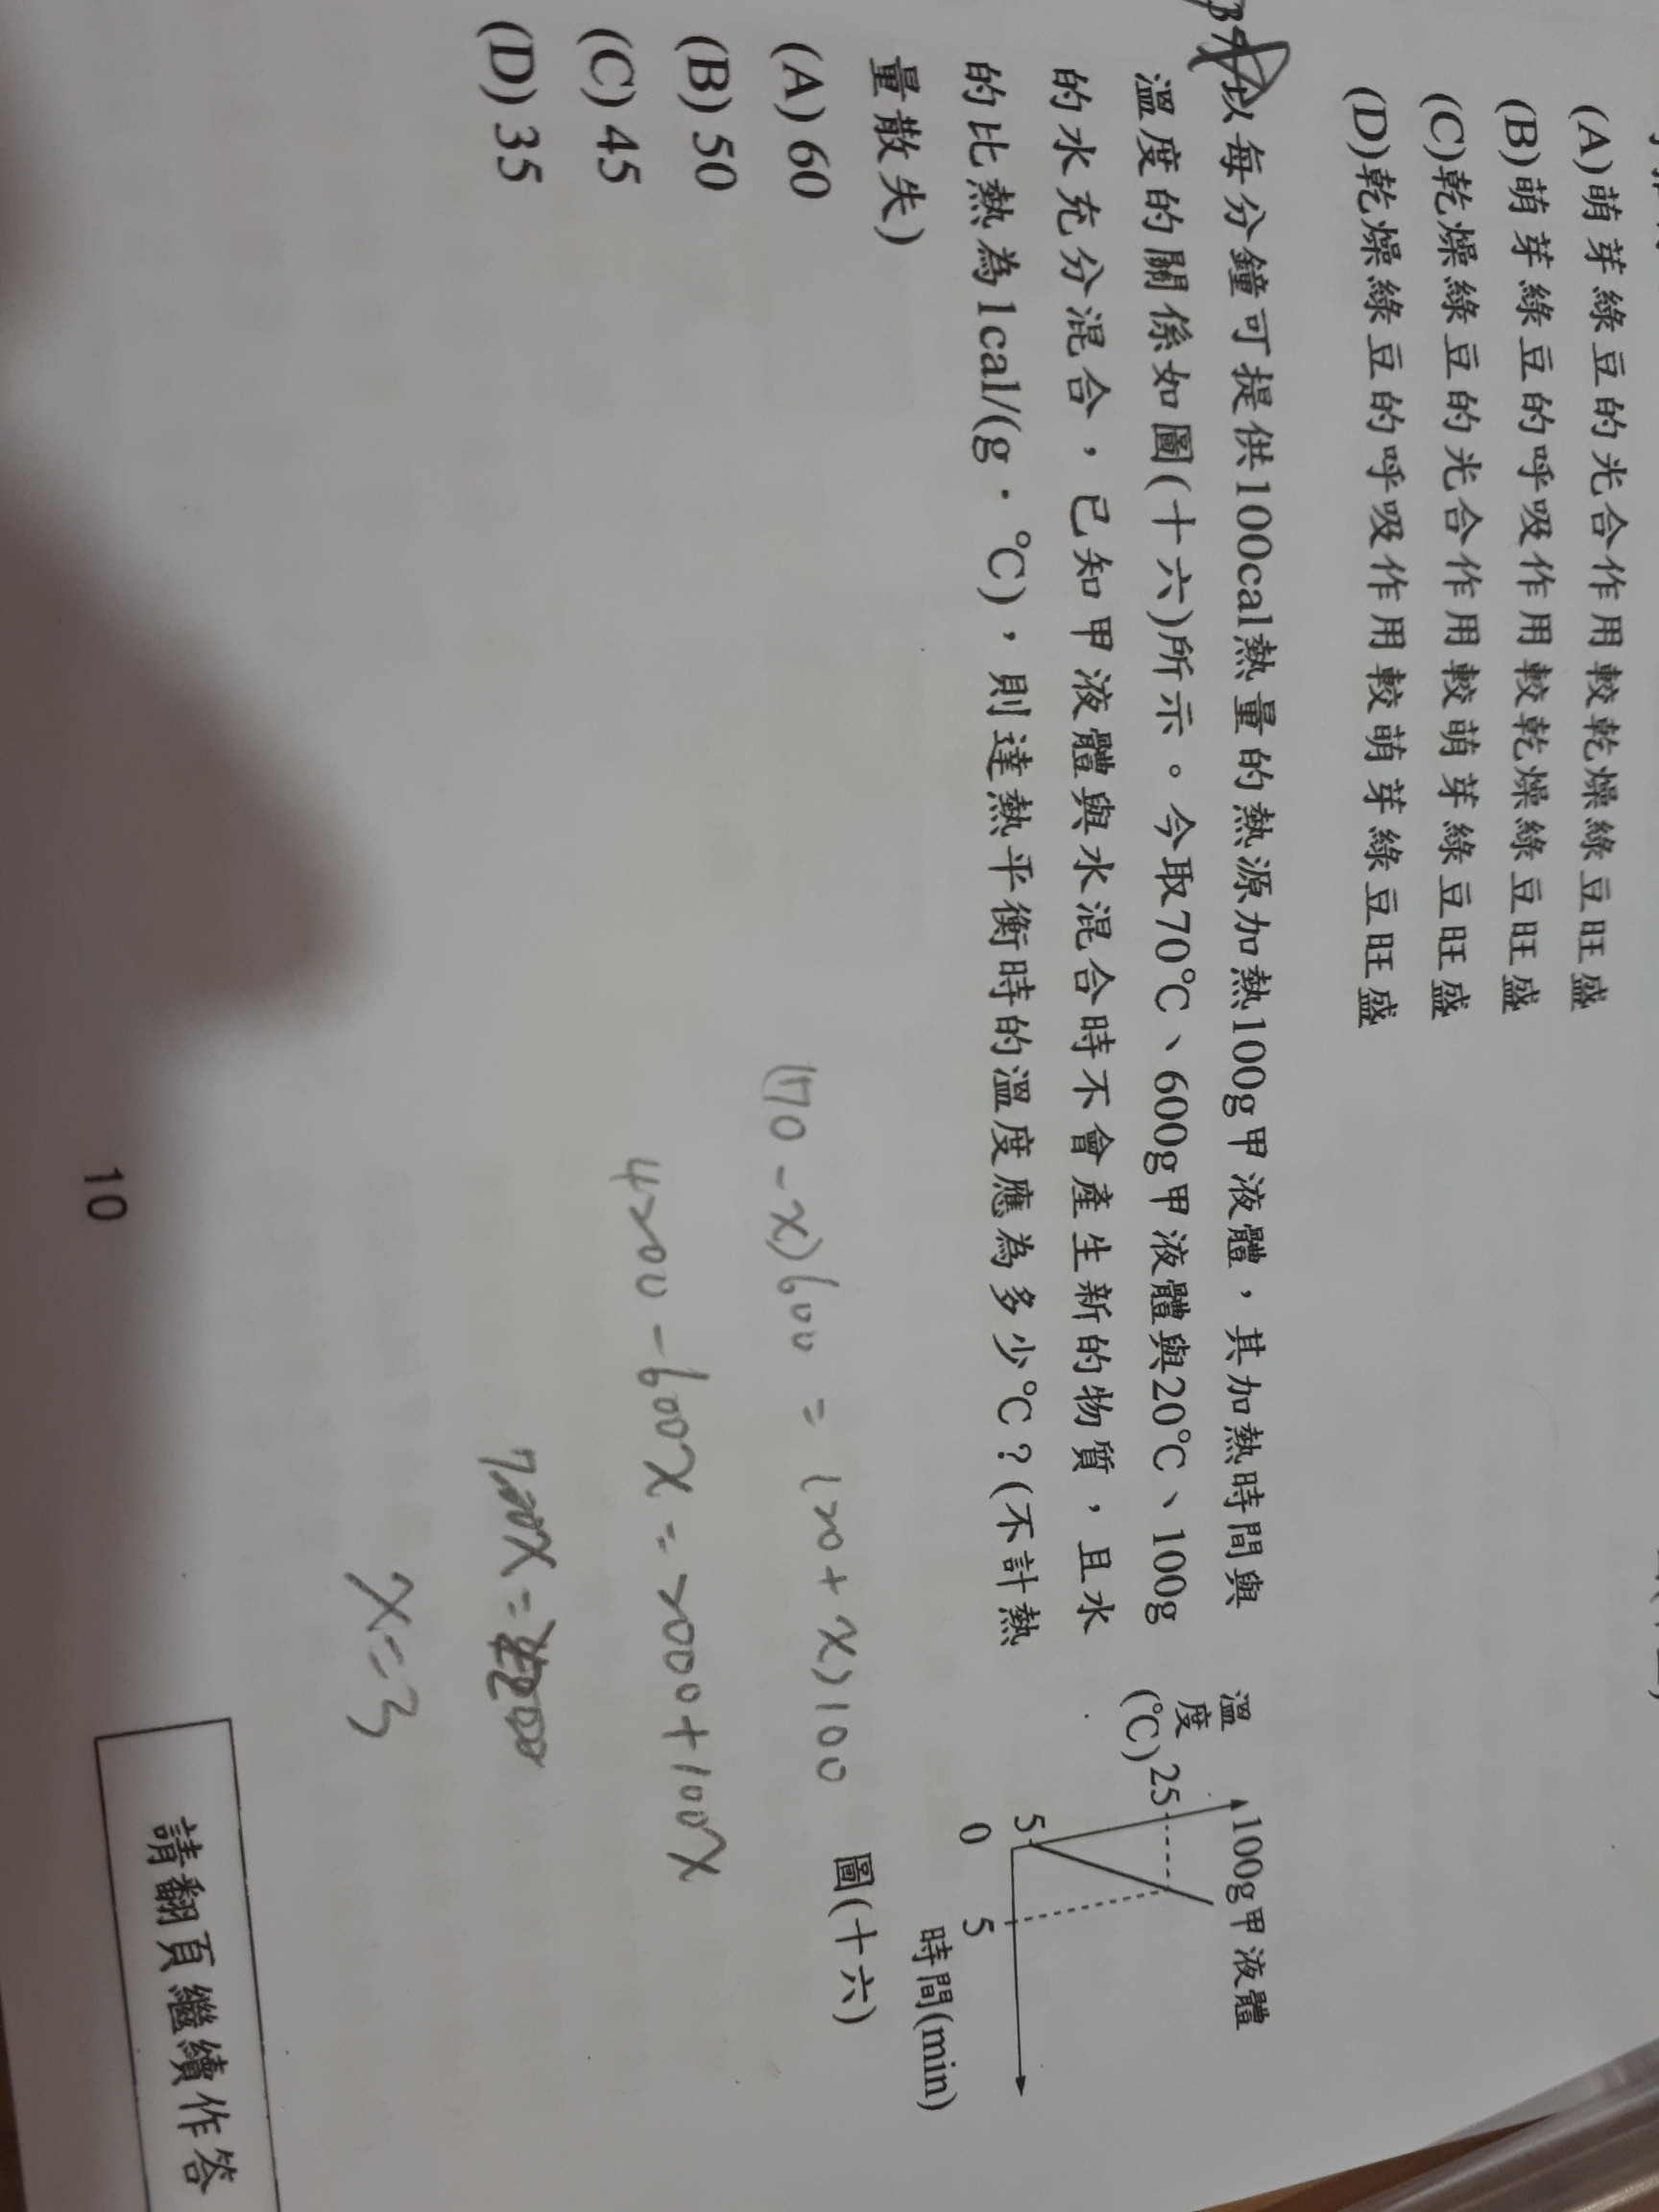 (A)萌芽綠豆的光合作用較乾燥綠豆旺盛
(B)萌芽綠豆的呼吸作用較乾燥綠豆旺盛
(C)乾燥綠豆的光合作用較萌芽綠豆旺盛
(D)乾燥綠豆的呼吸作用較萌芽綠豆旺盛
以每分鐘可提供100cal熱量的熱源加熱100g甲液體，其加熱時間與
溫度的關係如圖(十六)所示。今取70℃、600g甲液體與20℃、100g
的水充分混合，已知甲液體與水混合時不會產生新的物質，且水
的比熱為1cal/(g．℃)，則達熱平衡時的溫度應為多少℃？(不計熱
量散失)
(A) 60
(B) 50
(C) 45
(D) 35
溫度
(℃)
100g甲液體
25
5
0
5
時間(min)
圖(十六)
(70-x)600 = (20+x)100
4200-600x=2000+100x
x=3
10
請翻頁繼續作答